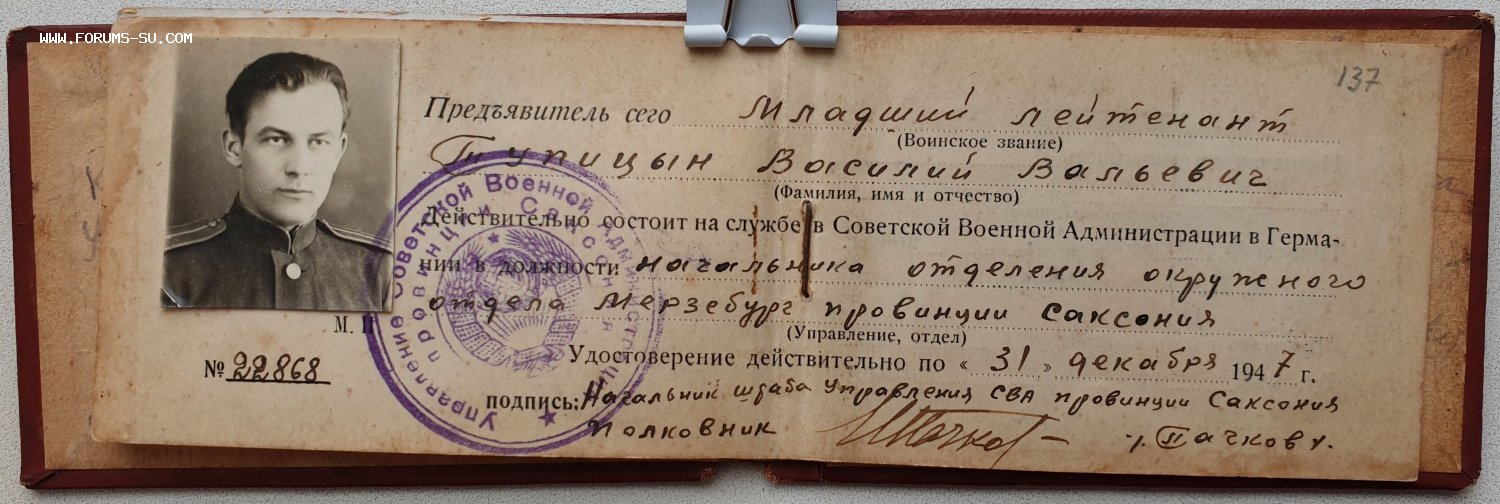 WWW.FORUMS-SU.COM
137
Предъявитель сего Младший лейтенант
(Воинское звание)
Тупицын Василий Вальевич
(Фамилия, имя и отчество)
Действительно состоит на службе в Советской Военной Администрации в Герма-
нии в должности начальника отделения окружного
отдела Мерзебург провинции Саксония
(Управление, отдел)
М. П
№ 22868
Удостоверение действительно по « 31 » декабря 1947 г.
подпись: Начальник штаба Управления СВА провинции Саксония
Полковник /Пачков/.
Управление Советской Военной Администрации
провинции Саксония